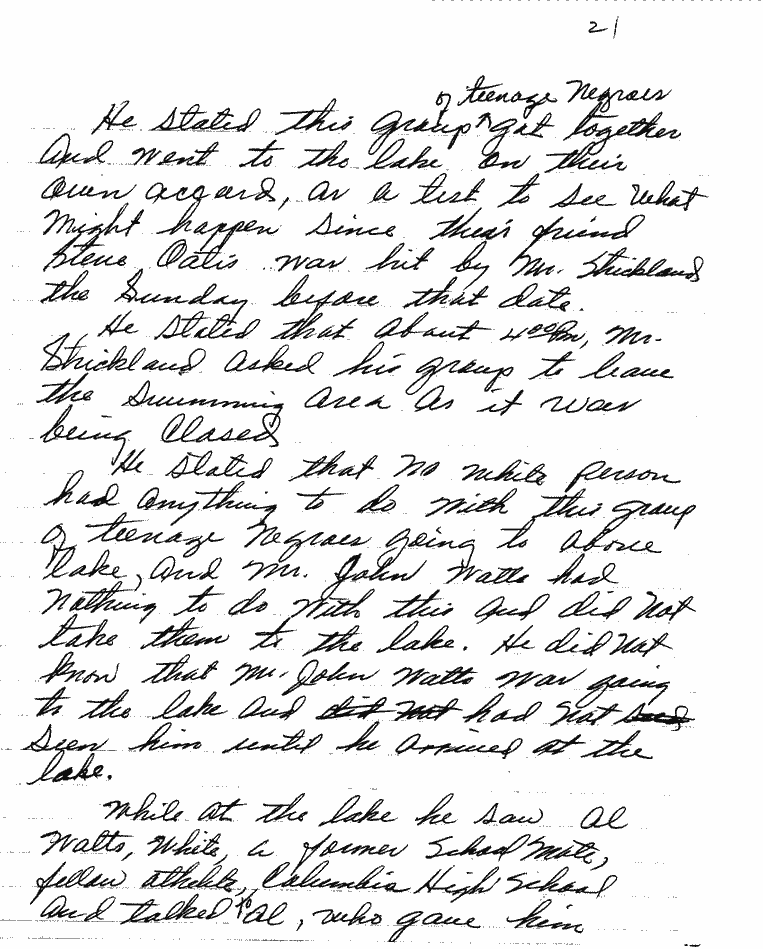 21
of teenage Negroes
He stated this group ^ got together
And went to the lake on their
own accord, as a test to see what
might happen since their friend
Steve Oatis was hit by Mr. Strickland
the Sunday before that date.
He stated that about 4:00 Pm, Mr.
Strickland asked his group to leave
the swimming area as it was
being closed
He stated that no white person
had anything to do with this group
of teenage Negroes going to above
lake, and Mr. John Watts had
nothing to do with this and did not
take them to the lake. He did not
know that Mr. John Watts was going
to the lake and did not had not
seen him until he arrived at the
lake.
While at the lake he saw Al
Watts, White, a former School mate,
fellow athlete, Columbia High School
and talked to Al, who gave him